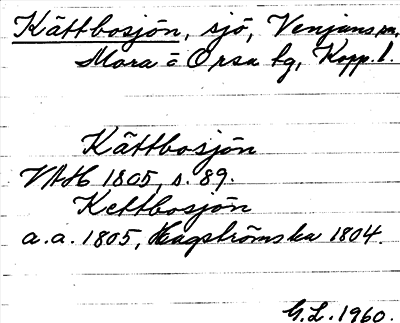 Kättbosjön, sjö, Venjans sn,
Mora o Orsa tg, Kopp. l.
Kättbosjön
VAH 1805, s. 89.
Kettbosjön
a.a. 1805, Hagströmska 1804.
G.L. 1960.